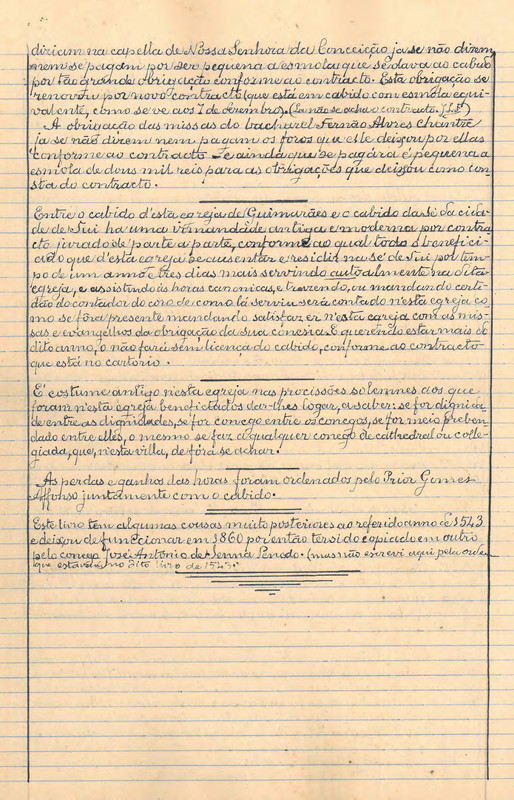 diriam na capella de Nossa Senhora da Conceição ja se não dizem,
nem se pagam por ser pequena a esmola que se dava ao cabido
por tão grande obrigação conforme ao contracto. Esta obrigação se
renovou por novo contracto (que está em cabido com esmola equi-
valente, como se ve aos 7 de dezembro). (La não se acha o contracto.
A obrigação das missas do bacharel Fernão Alvres Chantre
ja se não dizem nem pagam os foros que elle deixou por ellas
conforme ao contracto. E ainda que se pagára é pequena a
esmola de dous mil reis para as obrigações que deixou como con-
sta do contracto.
Entre o cabido d'esta egreja de Guimarães e o cabido da sé da cida-
de de Tui ha uma irmandade antiga e moderna por contra-
cto jurado de parte a parte, conforme ao qual todo o benefici-
ado que d'esta egreja se ausentar e residir na sé de Tui por tem-
po de um anno e tres dias mais servindo autualmente na dita
egreja, e assistindo ás horas canonicas, e trazendo, ou mandando certi-
dão do contador do coro de como lá serviu será contado n'esta egreja co-
mo se fôra presente mandando satisfazer n'esta egreja com as mis-
sas e evangelhos da obrigação da sua conesia. E querendo estar mais do
dito anno, o não fará sem licença do cabido, conforme ao contracto
que está no cartorio.
É costume antigo n'esta egreja nas procissões solemnes aos que
foram n'esta egreja beneficiados dar-lhes logar, a saber: se for dignida-
de entre as dignidades, se fôr conego entre os conegos, se fôr meio preben-
dado entre elles, o mesmo se faz a qualquer conego de cathedral ou colle-
giada, que, n'esta villa, de fóra se achar.
As perdas e ganhos das horas foram ordenados pelo Prior Gomes
Affonso juntamente com o cabido.
Este livro tem algumas cousas muito posteriores ao referido anno de 1543
e deixou de funccionar em 1860 por então ter sido copiado em outro
pelo conego José Antonio de Senna Penedo. (mas não escrevi aqui pela ordem
que estavam no dito livro de 1543.